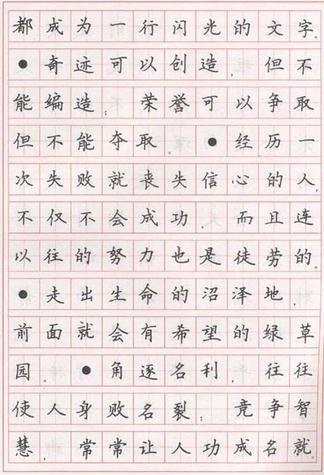 都成为一行闪光的文字
●奇迹可以创造,但不
能编造;荣誉可以争取
但不能夺取.●经历一
次失败就丧失信心的人
不仅不会成功.而且连
以往的努力也是徒劳的
●走出生命的沼泽地.
前面就会有希望的绿草
园.●角逐名利.往往
使人身败名裂;竞争智
慧.常常让人功成名就